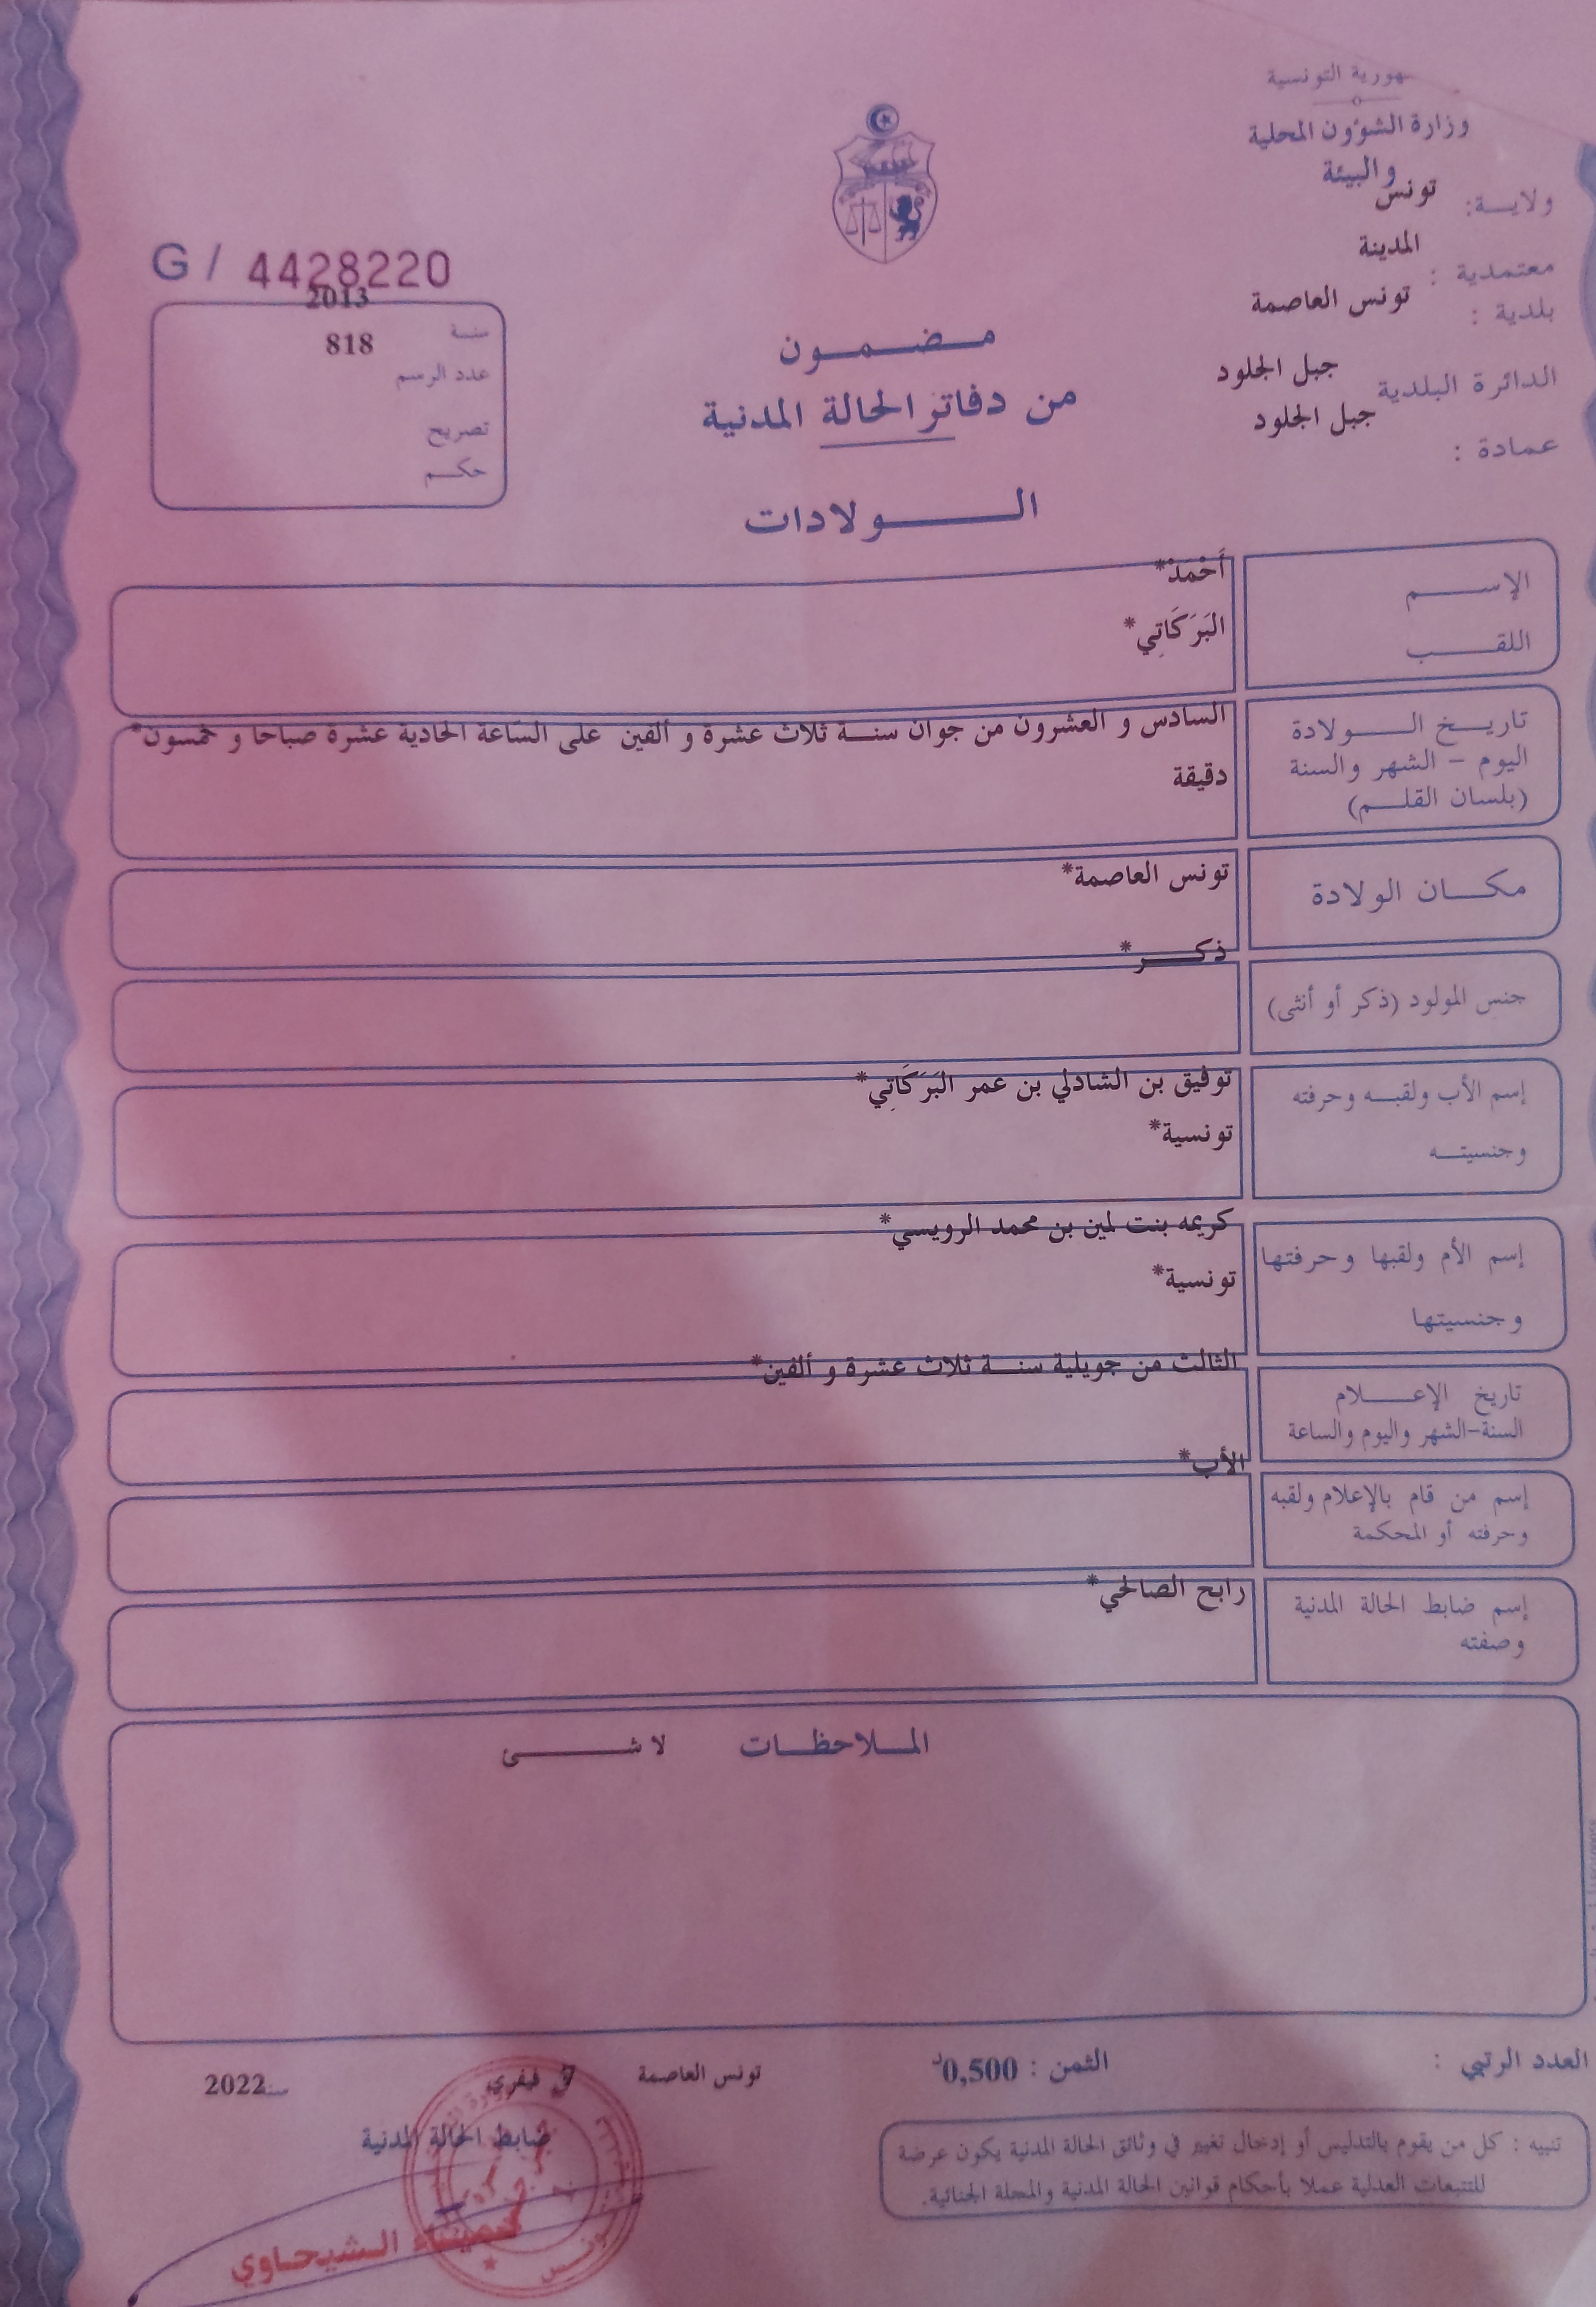 جمهورية التونسية
وزارة الشؤون المحلية
والبيئة
ولايـــة: تونس
معتمدية : المدينة
بلدية : تونس العاصمة
الدائرة البلدية جبل الجلود
عمادة : جبل الجلود
G / 4428220
سنـة 2013
عدد الرسم 818
تصريح
حكـــم
مـــضـــمـــون
من دفاتر الحالة المدنية
الـــــــولادات
الإســـــم أَحْمدْ*
اللقـــــب البَرَكَاتِي*
تاريـــخ الـــــولادة السادس و العشرون من جوان سنـــة ثلاث عشرة و ألفين على السّاعة الحادية عشرة صباحا و خمسون*
اليوم - الشهر والسنة دقيقة
(بلسان القلـــم)
مكـــان الولادة تونس العاصمة*
جنس المولود (ذكر أو أنثى) ذكـــــر*
إسم الأب ولقبـــه وحرفته توفيق بن الشادلي بن عمر البَرَكَاتِي*
وجنسيتـــه تونسية*
إسم الأم ولقبها وحرفتها كريمه بنت لمين بن محمد الرويسي*
وجنسيتها تونسية*
تاريخ الإعـــــلام الثالث من جويلية سنـــة ثلاث عشرة و ألفين*
السنة-الشهر واليوم والساعة
إسم من قام بالإعلام ولقبه الأب*
وحرفته أو المحكمة
إسم ضابط الحالة المدنية رابح الصالحي*
وصفته
المــلاحظــات لا شـــــــئ
العدد الرتبي :
الثمن : 0,500د
تونس العاصمة 7 فيفري سنـ2022
ضابط الحالة المدنية
الشيحاوي
تنبيه : كل من يقوم بالتدليس أو إدخال تغيير في وثائق الحالة المدنية يكون عرضة
للتتبعات العدلية عملا بأحكام قوانين الحالة المدنية والمجلة الجنائية.